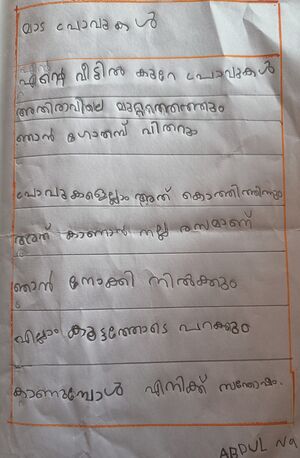 മാട പ്രാവുകൾ
എന്റെ വീട്ടിൽ കുറേ പ്രാവുകൾ
അതിരാവിലെ മുറ്റത്തെത്തും
ഞാൻ ഗോതമ്പ് വിതറും
പ്രാവുകളെല്ലാം അത് കൊത്തിത്തിന്നും
അത് കാണാൻ നല്ല രസമാണ്
ഞാൻ നോക്കി നിൽക്കും
എല്ലാം കൂട്ടത്തോടെ പറക്കും
കാണുമ്പോൾ എനിക്ക് സന്തോഷം.
ABDUL